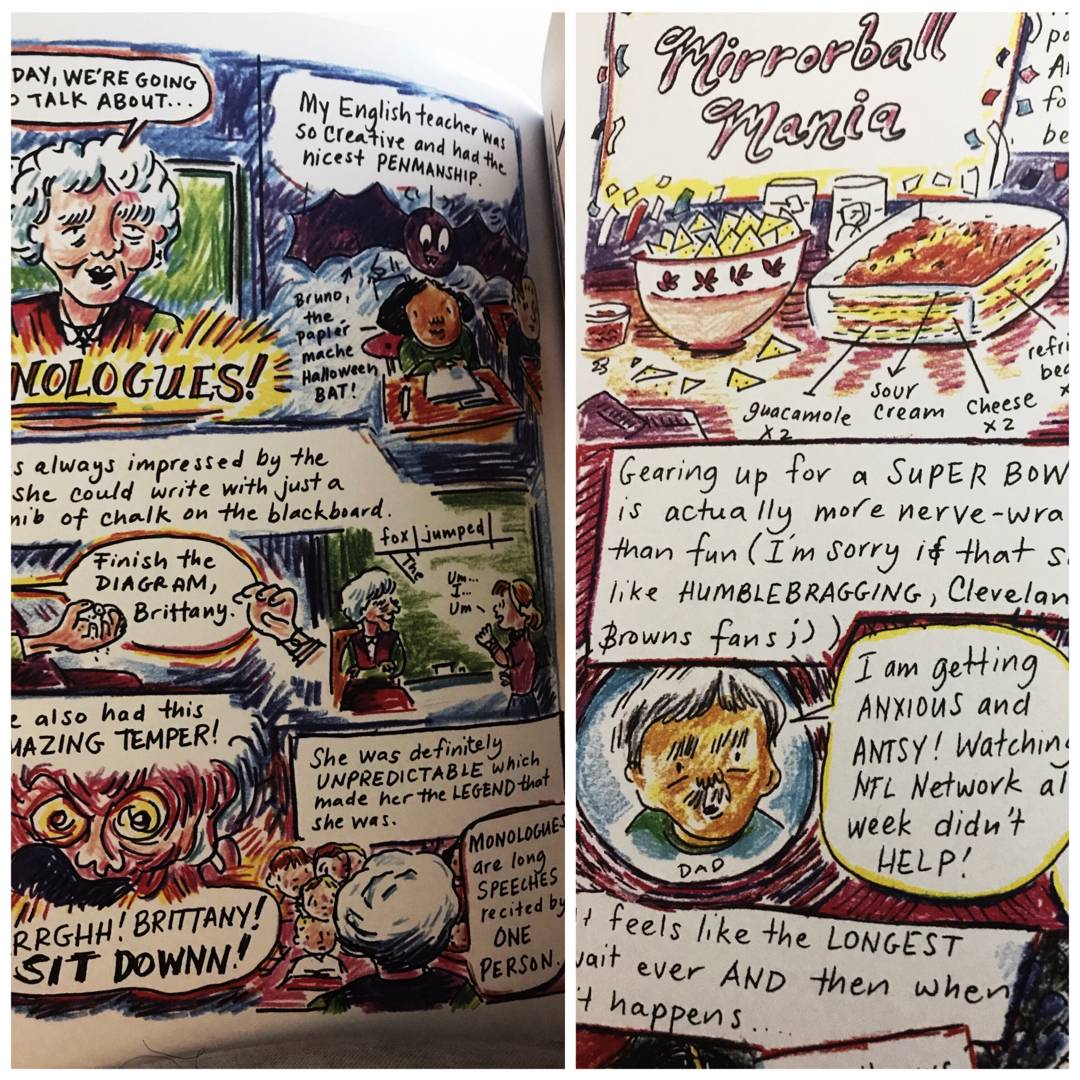 DAY, WE'RE GOING
TALK ABOUT...
NOLOGUES!
My English teacher was
so creative and had the
nicest PENMANSHIP.
Bruno,
the
papier-
mache
Halloween
BAT!
s always impressed by the
she could write with just a
nib of chalk on the blackboard.
Finish the
DIAGRAM,
Brittany.
fox jumped
The
Um...
I...
Um
e also had this
MAZING TEMPER!
RRGHH! BRITTANY!
SIT DOWNN!
She was definitely
UNPREDICTABLE which
made her the LEGEND that
she was.
MONOLOGUES
are long
SPEECHES
recited by
ONE
PERSON.
Mirrorball
Mania
po
A
fo
be
guacamole
x2
sour
cream
cheese
x2
refri
bea
Gearing up for a SUPER BOW
is actually more nerve-wra
than fun (I'm sorry if that s
like HUMBLEBRAGGING, Clevelan
Browns fans ;) )
I am getting
ANXIOUS and
ANTSY! Watching
NFL Network al
week didn't
HELP!
DAD
t feels like the LONGEST
wait ever AND then when
t happens....